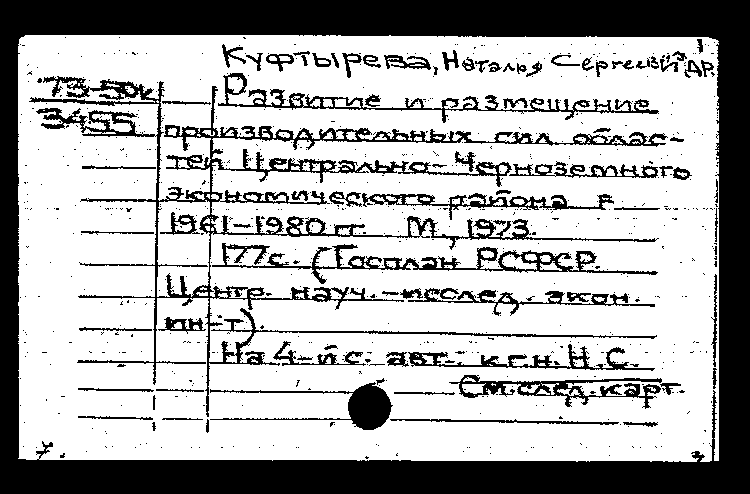 1
Куфтырева, Наталья Сергеевна и др.
73-50к
3455
Развитие и размещение
производительных сил облас-
тей Центрально-Черноземного
экономического района в
1961-1980 гг. М., 1973.
177с. (Госплан РСФСР.
Центр. науч.-исслед. экон.
ин-т).
На 4-й с. авт.: к.г.н. Н.С.
См. след. карт.
7.